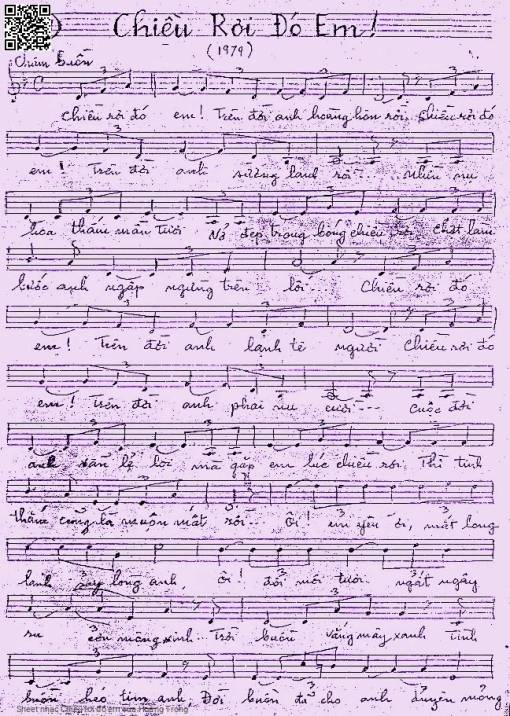 Chiều Rồi Đó Em!
(1979)
Chậm buồn
Chiều rồi đó em! Trên đồi anh hoàng hôn rồi. Chiều rồi đó
em! Trên đồi anh sương lạnh rồi... Nhìn nụ
hoa thắm mãn tươi Nở đẹp trong bóng chiều rơi chợt làm
bước anh ngập ngừng trên lối... Chiều rồi đó
em! Trên đồi anh lạnh tê người Chiều rồi đó
em! Trên đồi anh phai nụ cười... Cuộc đời
anh vẫn lẻ loi mà gặp em lúc chiều rồi. Thì tình
thắm cũng là muộn mất rồi... Ôi! em yêu ơi, mắt long
lanh say lòng anh, ôi! đôi môi tươi ngất ngây
ru còn mộng xinh... Trời buồn vắng mây xanh Tình
buồn cho tim anh, Đời buồn đã cho anh duyên mỏng
Sheet nhạc Chiều rồi đó em của Hoàng Trọng